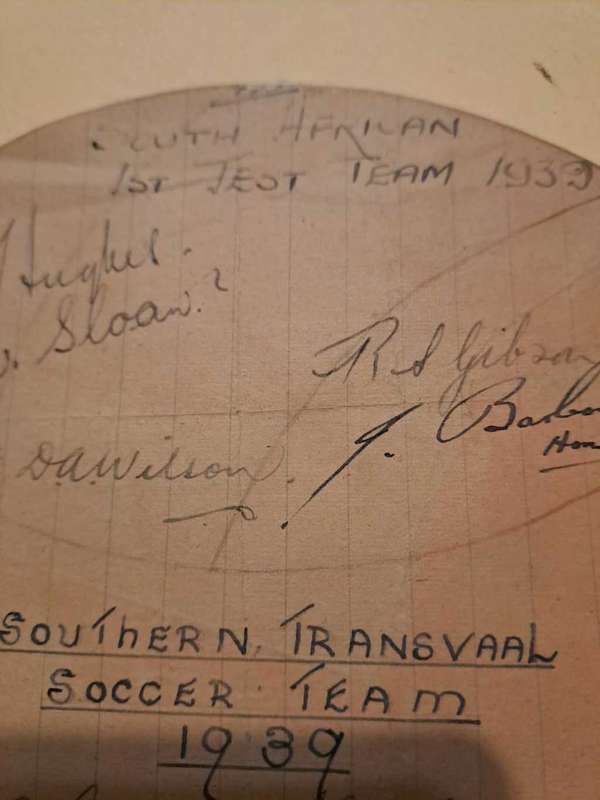 SOUTH AFRICAN
1ST TEST TEAM 1939
Hughes.
Sloan.?
R S Gibson
J. Barbou
Hon
D.A. Wilson.
SOUTHERN TRANSVAAL
SOCCER TEAM
1939